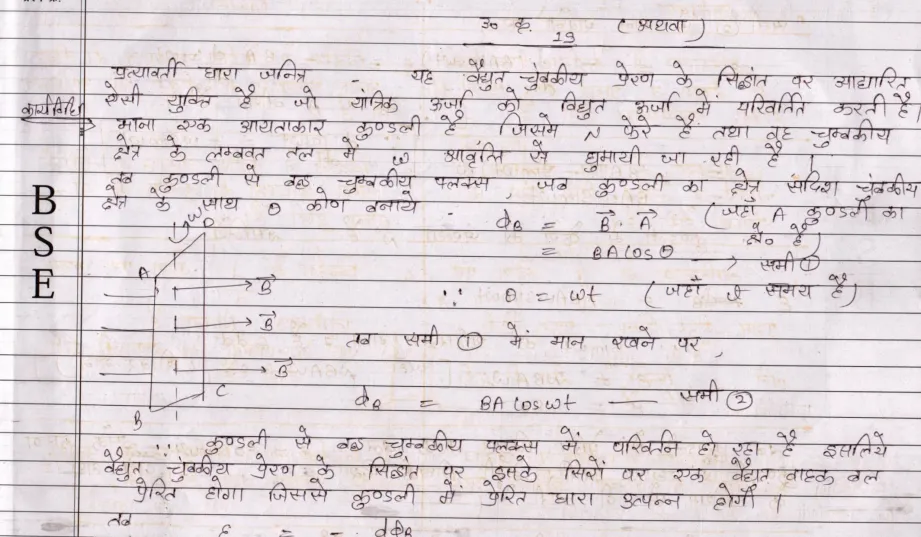 उ० क्र. 19 (अथवा)
प्रत्यावर्ती धारा जनित्र - यह वैद्युत चुंबकीय प्रेरण के सिद्धांत पर आधारित
ऐसी युक्ति है जो यांत्रिक ऊर्जा को विद्युत ऊर्जा में परिवर्तित करती है।
कार्यविधि
माना एक आयताकार कुण्डली है जिसमें N फेरे हैं तथा वह चुम्बकीय
क्षेत्र के लम्बवत तल में ω आवृत्ति से घुमायी जा रही है।
तब कुण्डली से बद्ध चुम्बकीय फ्लक्स, जब कुण्डली का क्षेत्र सदिश चुंबकीय
क्षेत्र के साथ θ कोण बनाये -
ϕB = B⃗ · A⃗ (जहाँ A कुण्डली का क्षे० है)
= BA cosθ —→ समी ①
∵ θ = ωt (जहाँ t समय है)
ω
D
A
B⃗
B⃗
B⃗
C
B
तब समी ① में मान रखने पर,
ϕB = BA cosωt — समी ②
∵ कुण्डली से बद्ध चुम्बकीय फ्लक्स में परिवर्तन हो रहा है इसलिये
वैद्युत चुंबकीय प्रेरण के सिद्धांत पर इसके सिरों पर एक वैद्युत वाहक बल
प्रेरित होगा जिससे कुण्डली में प्रेरित धारा उत्पन्न होगी।
तब ε = - dΦB
B
S
E